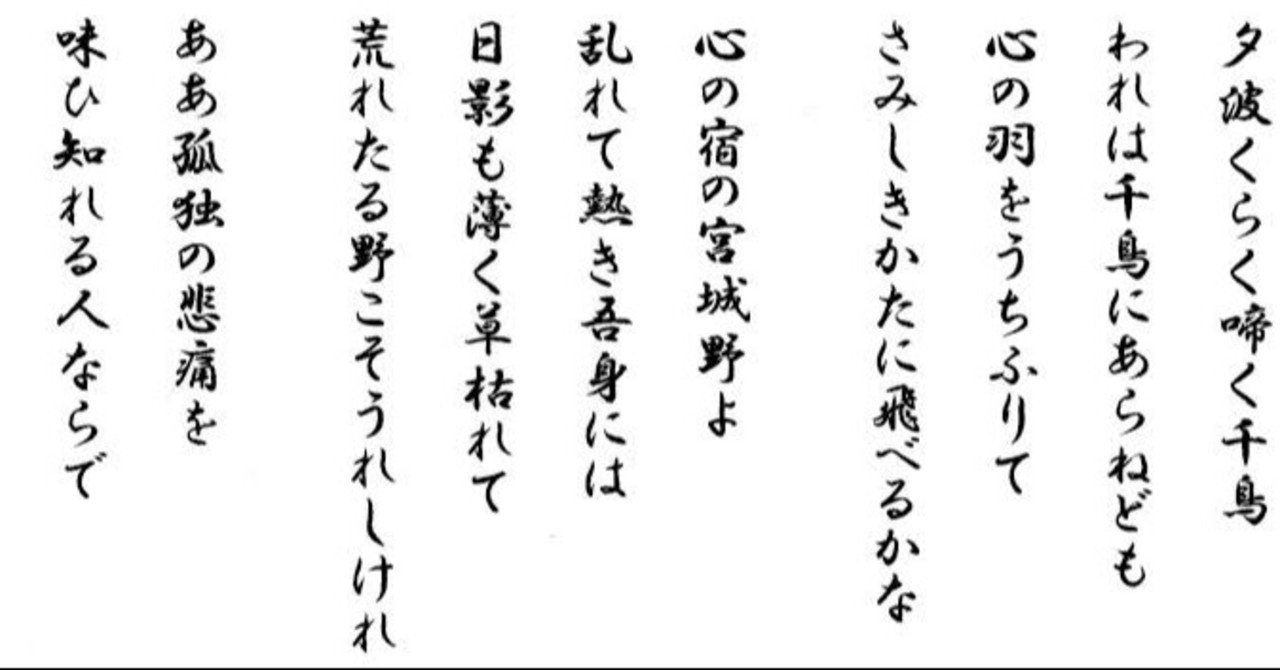 夕波くらく啼く千鳥
われは千鳥にあらねども
心の羽をうちふりて
さみしきかたに飛べるかな
心の宿の宮城野よ
乱れて熱き吾身には
日影も薄く草枯れて
荒れたる野こそうれしけれ
ああ孤独の悲痛を
味ひ知れる人ならで